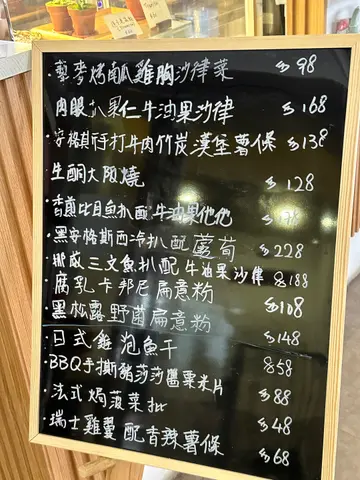 ·藜麥烤南瓜雞胸沙律菜 $98
·肉眼扒果仁牛油果沙律 $168
·安格斯手打牛肉竹炭漢堡薯條 $138
·生酮大阪燒 $128
·香煎比目魚扒配牛油果他他
·黑安格斯西冷扒配蘆荀 $228
·挪威三文魚扒配牛油果沙律 $188
·腐乳卡邦尼扁意粉 $108
·黑松露野菌扁意粉 $148
·日式雞泡魚干 $58
·BBQ手撕豬莎莎醬粟米片 $88
·法式焗菠菜批 $48
·瑞士雞翼配香辣薯條 $68